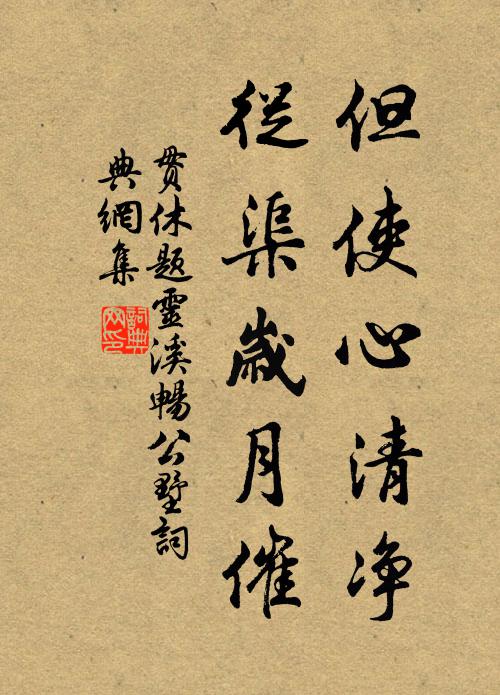 但使心清净
從渠歲月催
貫休題靈溪暢公墅詞
典網集
詞典網印